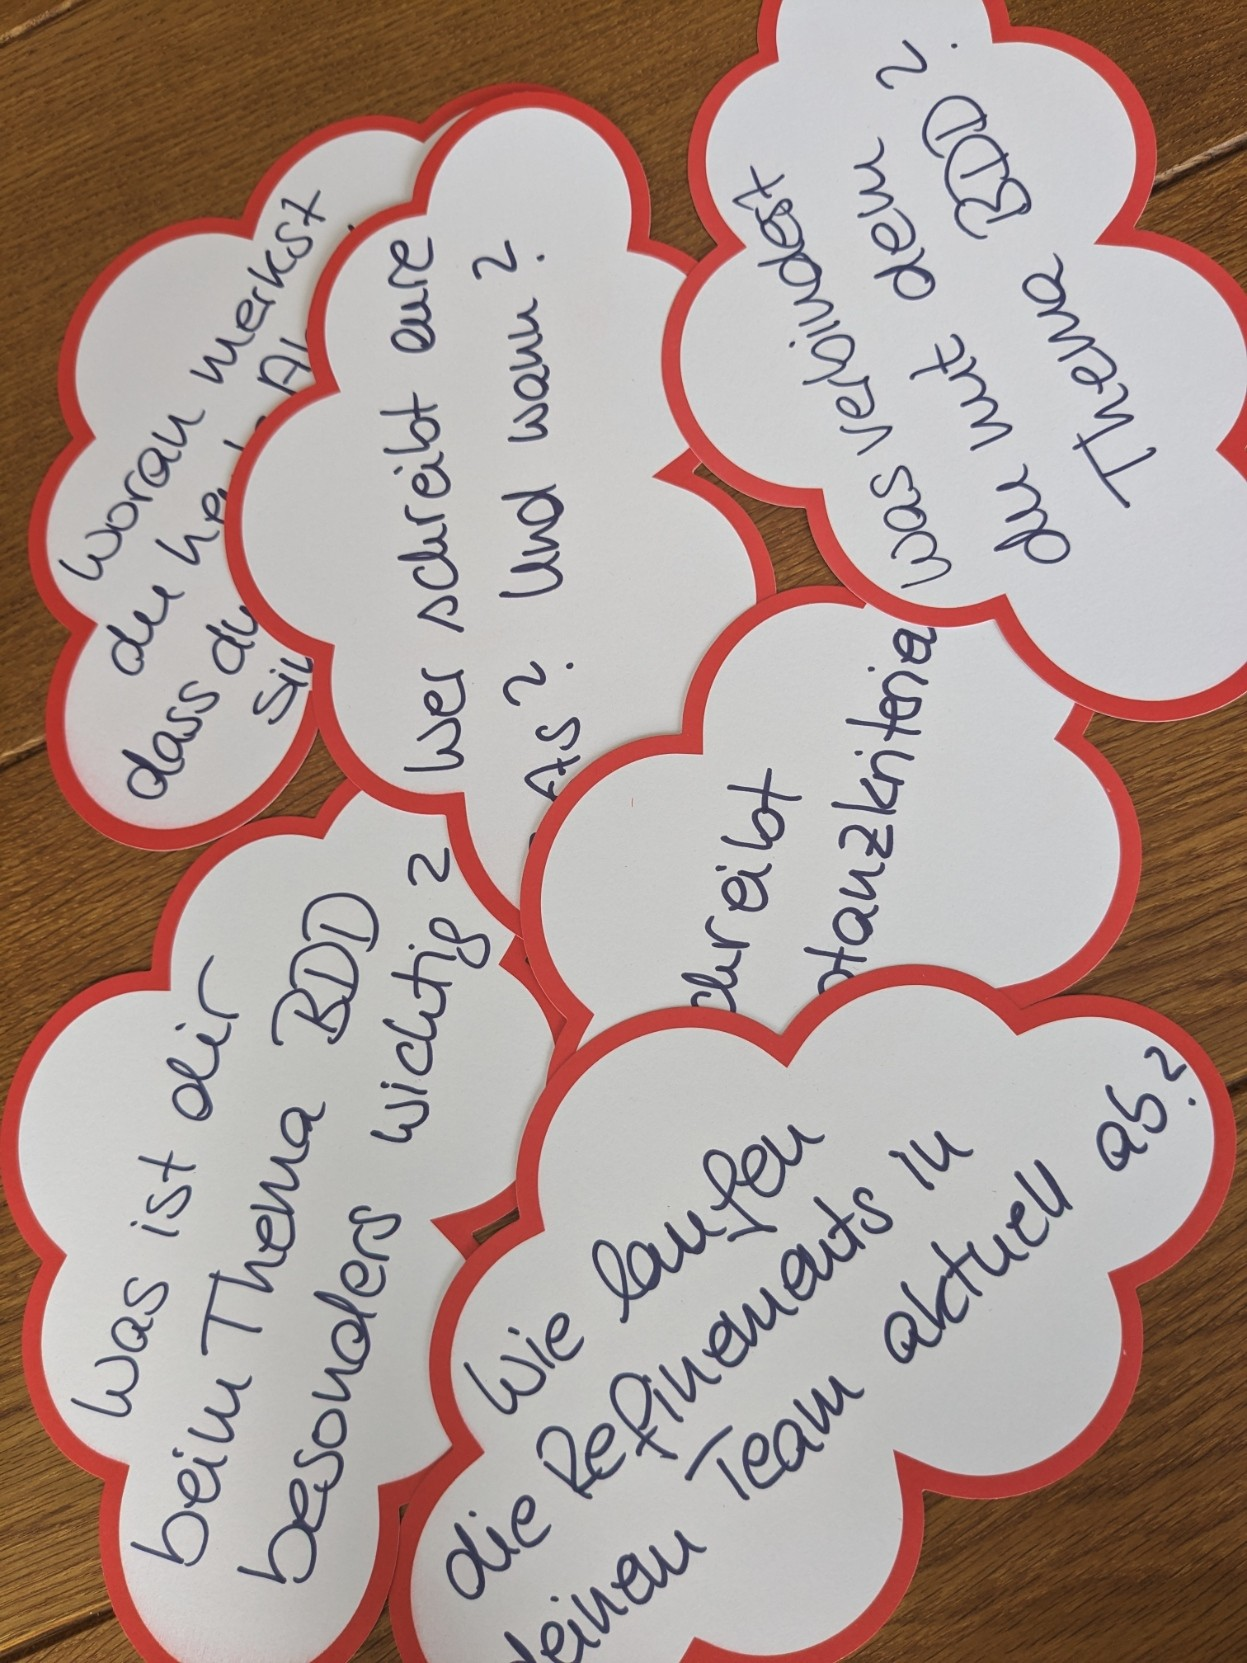 woran merkst
du he
dass du
Wer schreibt eure
As? Und wann?
was verbindest
du mit dem
Thema BDD?
chreibt
ptanzkriteria
was ist dir
beim Thema BDD
besonders wichtig?
Wie laufen
die Refinements in
deinem Team aktuell ab?